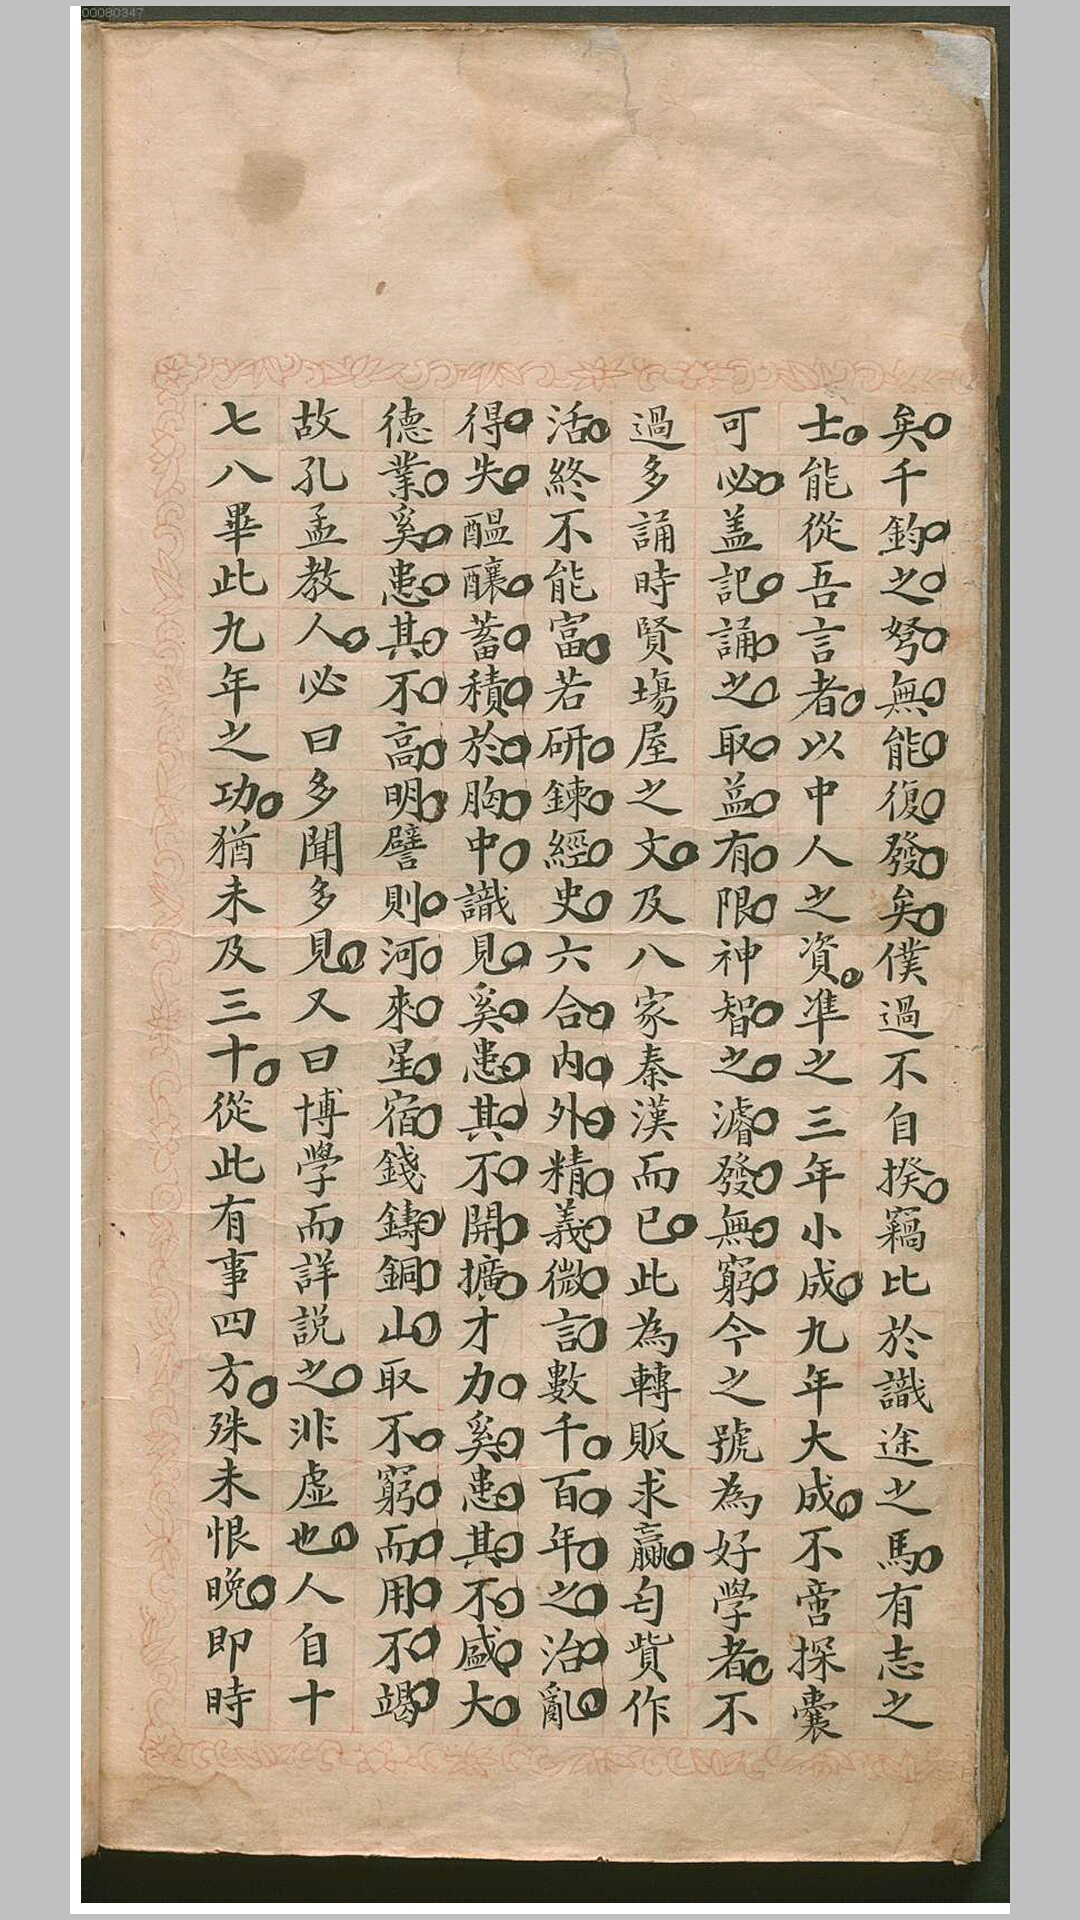 00080347
矣千鈞之弩無能復發矣僕過不自揆竊比於識途之馬有志之
士能從吾言者以中人之資準之三年小成九年大成不啻探囊
可必盖記誦之取益有限神智之濬發無窮今之號為好學者不
過多誦時賢塲屋之文及八家秦漢而已此為轉販求贏匄貲作
活終不能富若研鍊經史六合內外精義微言數千百年之治亂
得失醞釀蓄積於胸中識見奚患其不開擴才力奚患其不盛大
德業奚患其不高明譬則河來星宿錢鑄銅山取不窮而用不竭
故孔孟教人必曰多聞多見又曰博學而詳説之非虛也人自十
七八畢此九年之功猶未及三十從此有事四方殊未恨晚即時